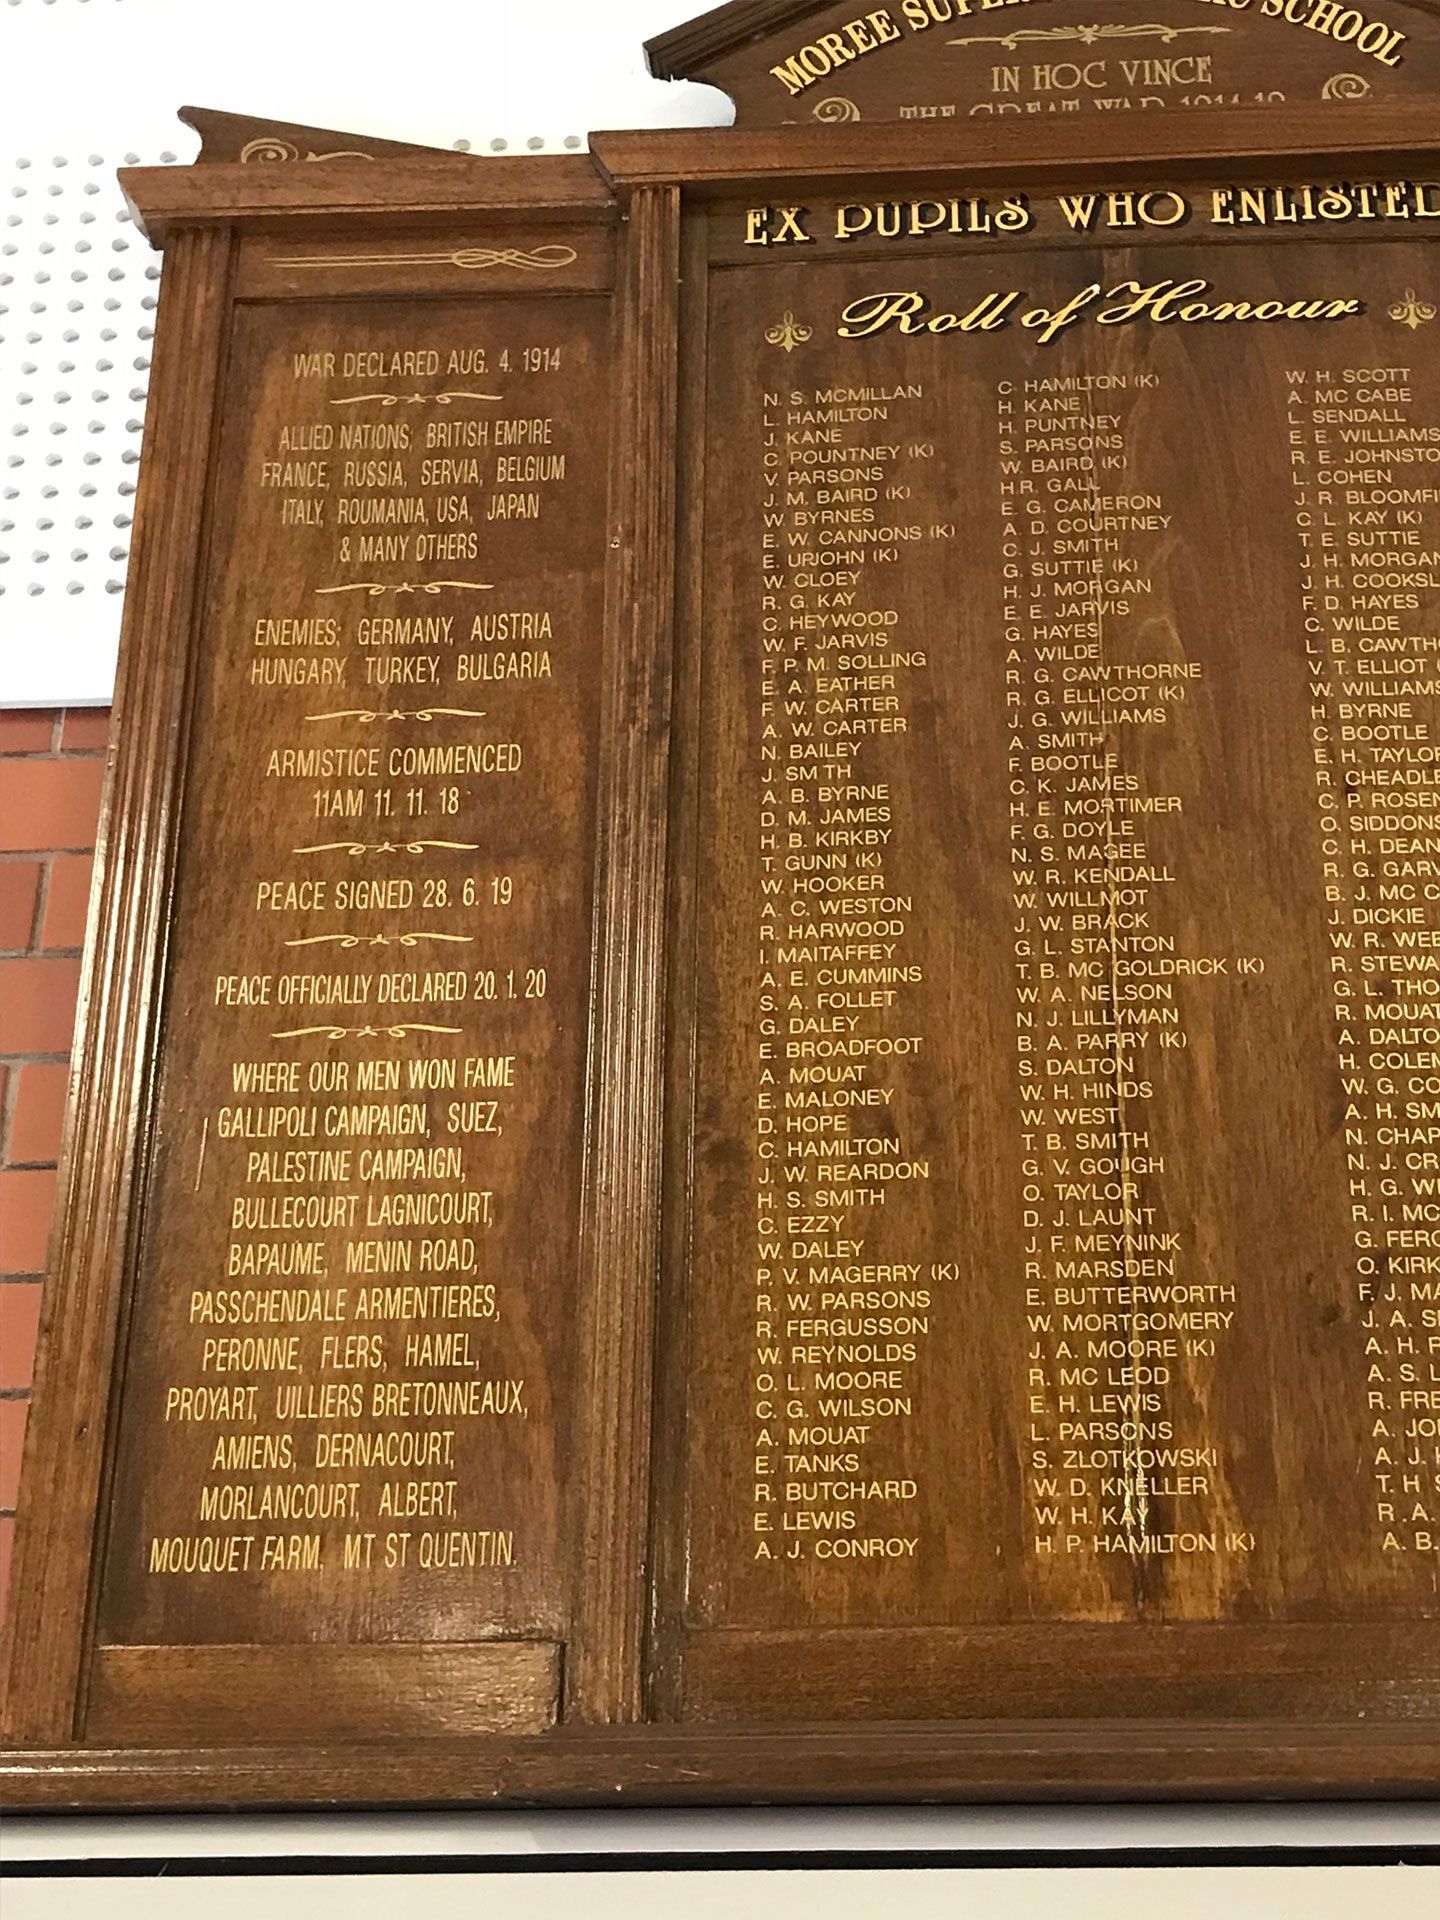 MOREE SCHOOL
IN HOC VINCE
THE GREAT WAR 1914-19
EX PUPILS WHO ENLISTED
Roll of Honour
WAR DECLARED AUG. 4. 1914
ALLIED NATIONS, BRITISH EMPIRE
FRANCE, RUSSIA, SERVIA, BELGIUM
ITALY, ROUMANIA, USA, JAPAN
& MANY OTHERS
ENEMIES; GERMANY, AUSTRIA
HUNGARY, TURKEY, BULGARIA
ARMISTICE COMMENCED
11AM 11. 11. 18
PEACE SIGNED 28. 6. 19
PEACE OFFICIALLY DECLARED 20. 1. 20
WHERE OUR MEN WON FAME
GALLIPOLI CAMPAIGN, SUEZ,
PALESTINE CAMPAIGN,
BULLECOURT LAGNICOURT,
BAPAUME, MENIN ROAD,
PASSCHENDALE ARMENTIERES,
PERONNE, FLERS, HAMEL,
PROYART, UILLIERS BRETONNEAUX,
AMIENS, DERNACOURT,
MORLANCOURT, ALBERT,
MOUQUET FARM, MT ST QUENTIN.
N. S. MCMILLAN
L. HAMILTON
J. KANE
C. POUNTNEY (K)
V. PARSONS
J. M. BAIRD (K)
W. BYRNES
E. W. CANNONS (K)
E. URJOHN (K)
W. CLOEY
R. G. KAY
C. HEYWOOD
W. F. JARVIS
F. P. M. SOLLING
E. A. EATHER
F. W. CARTER
A. W. CARTER
N. BAILEY
J. SM TH
A. B. BYRNE
D. M. JAMES
H. B. KIRKBY
T. GUNN (K)
W. HOOKER
A. C. WESTON
R. HARWOOD
I. MAITAFFEY
A. E. CUMMINS
S. A. FOLLET
G. DALEY
E. BROADFOOT
A. MOUAT
E. MALONEY
D. HOPE
C. HAMILTON
J. W. REARDON
H. S. SMITH
C. EZZY
W. DALEY
P. V. MAGERRY (K)
R. W. PARSONS
R. FERGUSSON
W. REYNOLDS
O. L. MOORE
C. G. WILSON
A. MOUAT
E. TANKS
R. BUTCHARD
E. LEWIS
A. J. CONROY
C. HAMILTON (K)
H. KANE
H. PUNTNEY
S. PARSONS
W. BAIRD (K)
H.R. GALL
E. G. CAMERON
A. D. COURTNEY
C. J. SMITH
G. SUTTIE (K)
H. J. MORGAN
E. E. JARVIS
G. HAYES
A. WILDE
R. G. CAWTHORNE
R. G. ELLICOT (K)
J. G. WILLIAMS
A. SMITH
F. BOOTLE
C. K. JAMES
H. E. MORTIMER
F. G. DOYLE
N. S. MAGEE
W. R. KENDALL
W. WILLMOT
J. W. BRACK
G. L. STANTON
T. B. MC GOLDRICK (K)
W. A. NELSON
N. J. LILLYMAN
B. A. PARRY (K)
S. DALTON
W. H. HINDS
W. WEST
T. B. SMITH
G. V. GOUGH
O. TAYLOR
D. J. LAUNT
J. F. MEYNINK
R. MARSDEN
E. BUTTERWORTH
W. MORTGOMERY
J. A. MOORE (K)
R. MC LEOD
E. H. LEWIS
L. PARSONS
S. ZLOTKOWSKI
W. D. KNELLER
W. H. KAY
H. P. HAMILTON (K)
W. H. SCOTT
A. MC CABE
L. SENDALL
E. E. WILLIAMS
R. E. JOHNSTO
L. COHEN
J. R. BLOOMFI
C. L. KAY (K)
T. E. SUTTIE
J. H. MORGAN
J. H. COOKSL
F. D. HAYES
C. WILDE
L. B. CAWTH
V. T. ELLIOT (
W. WILLIAMS
H. BYRNE
C. BOOTLE
E. H. TAYLOR
R. CHEADLE
C. P. ROSEN
O. SIDDONS
C. H. DEAN
R. G. GARV
B. J. MC C
J. DICKIE
W. R. WEB
R. STEWA
G. L. THO
R. MOUAT
A. DALTO
H. COLEM
W. G. CO
A. H. SM
N. CHAP
N. J. CR
H. G. W
R. I. MC
G. FERG
O. KIRK
F. J. MA
J. A. S
A. H. R
A. S. L
R. FRE
A. JO
A. J.
T. H S
R .A.
A. B.